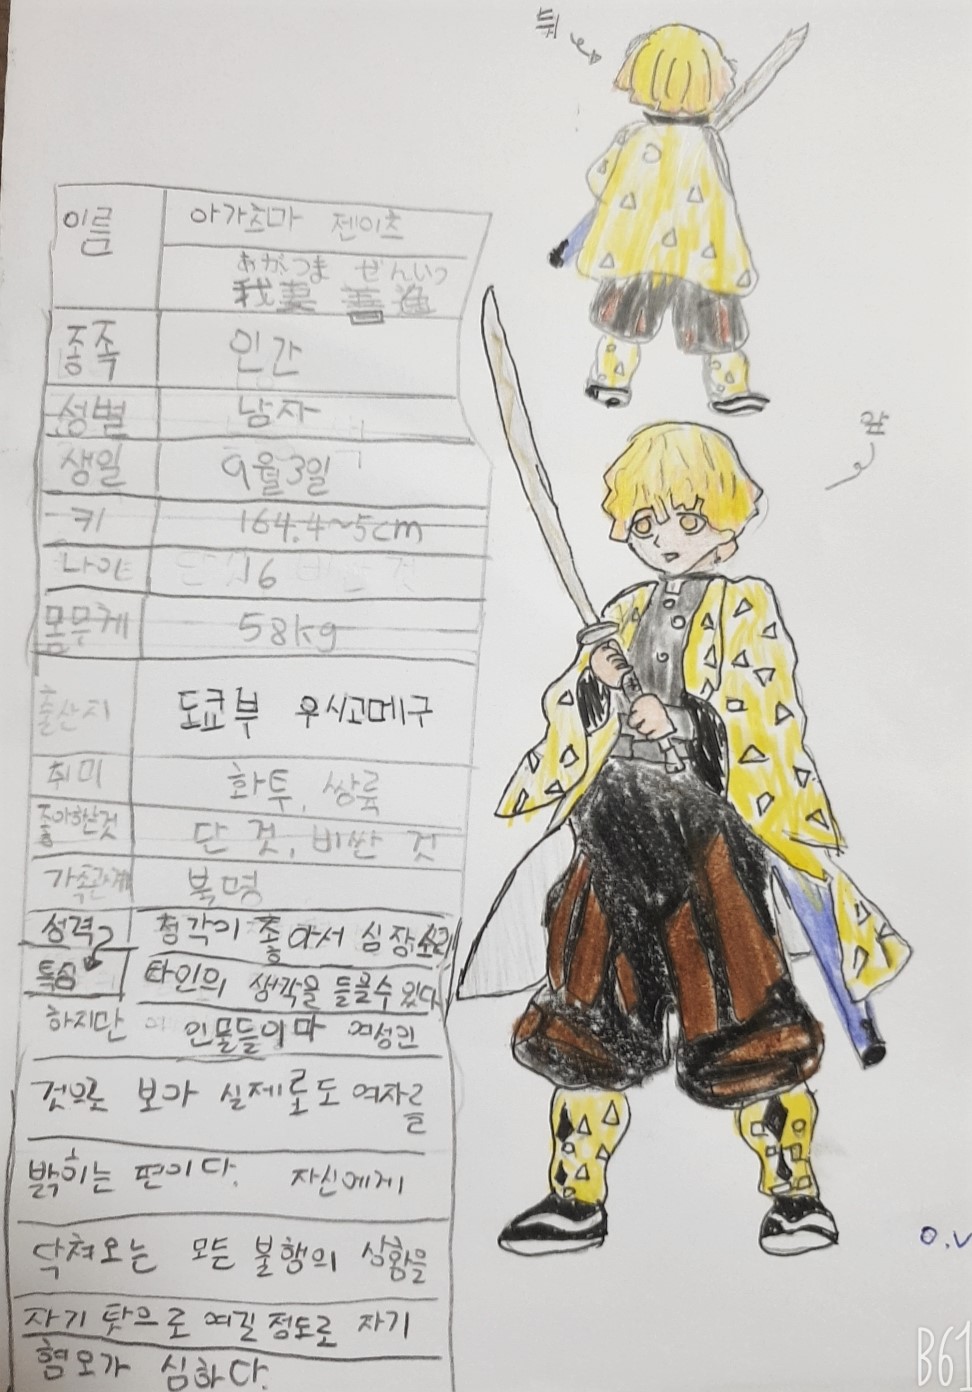 뒤
이름 아가츠마 젠이츠
あがつま ぜんいつ
我妻 善逸
종족 인간
성별 남자
생일 9월3일
앞
키 164.4~5cm
나이 16
몸무게 58kg
출산지 도쿄부 우시고메구
취미 화투, 쌍륙
좋아하는것 단 것, 비싼 것
가족관계 불명
성격2 청각이 좋아서 심장소리
특승 타인의 생각을 들을수있다
하지만 인물들이마 여성인
것으로 보아 실제로도 여자를
밝히는 편이다. 자신에게
닥쳐오는 모든 불행의 상황을
자기 탓으로 여길정도로 자기
혐오가 심하다.
O.V
B61